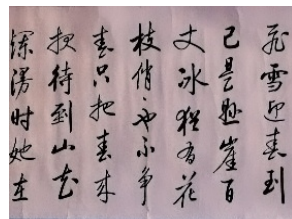 飞雪迎春到
已是悬崖百
丈冰犹有花
枝俏也不争
春只把春来
报待到山花
烂漫时她在